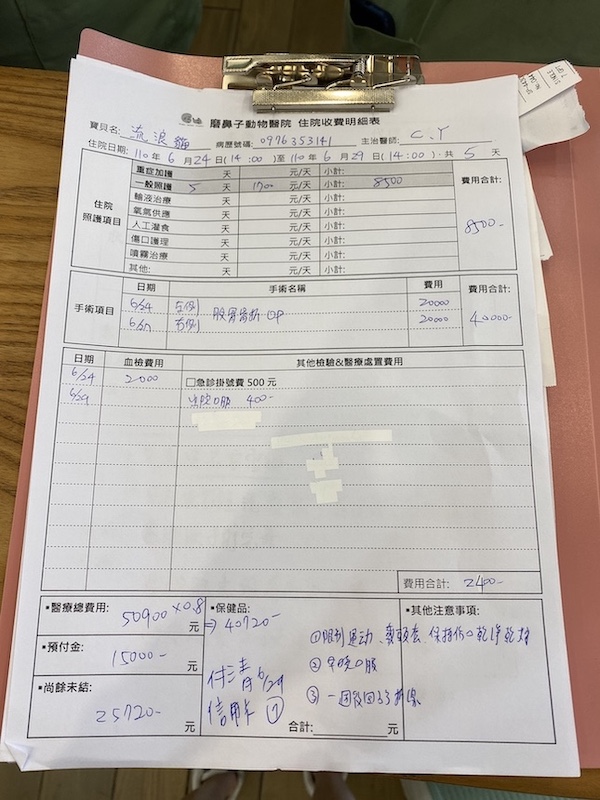 磨鼻子動物醫院 住院收費明細表
寶貝名: 流浪貓 病歷號碼: 0976353141 主治醫師: C.Y
住院日期: 110年 6月 24日(14:00)至 110年 6月 29日(14:00)‧共 5 天
住院照護項目
重症加護 天 元/天 小計:
一般照護 5 天 1700 元/天 小計: 8500
輸液治療 天 元/天 小計:
氧氣供應 天 元/天 小計:
人工灌食 天 元/天 小計:
傷口護理 天 元/天 小計:
噴霧治療 天 元/天 小計:
其他: 天 元/天 小計:
費用合計:
8500-
手術項目
日期 手術名稱 費用 費用合計:
6/24 左側 股骨骨折 OP 20000
6/27 右側 20000
40000-
日期 血檢費用 其他檢驗&醫療處置費用
6/24 2000 □急診掛號費 500 元
6/29 出院口服 400-
費用合計: 2400-
▪醫療總費用: 50900 ×0.8 元
⇒ 40720-
▪預付金: 15000- 元
▪尚餘未結: 25720- 元
▪保健品:
付清 6/29
信用卡
合計: 元
▪其他注意事項:
①限制運動、戴頭套、保持傷口乾淨乾燥
②早晚口服
③一週後回診拆線